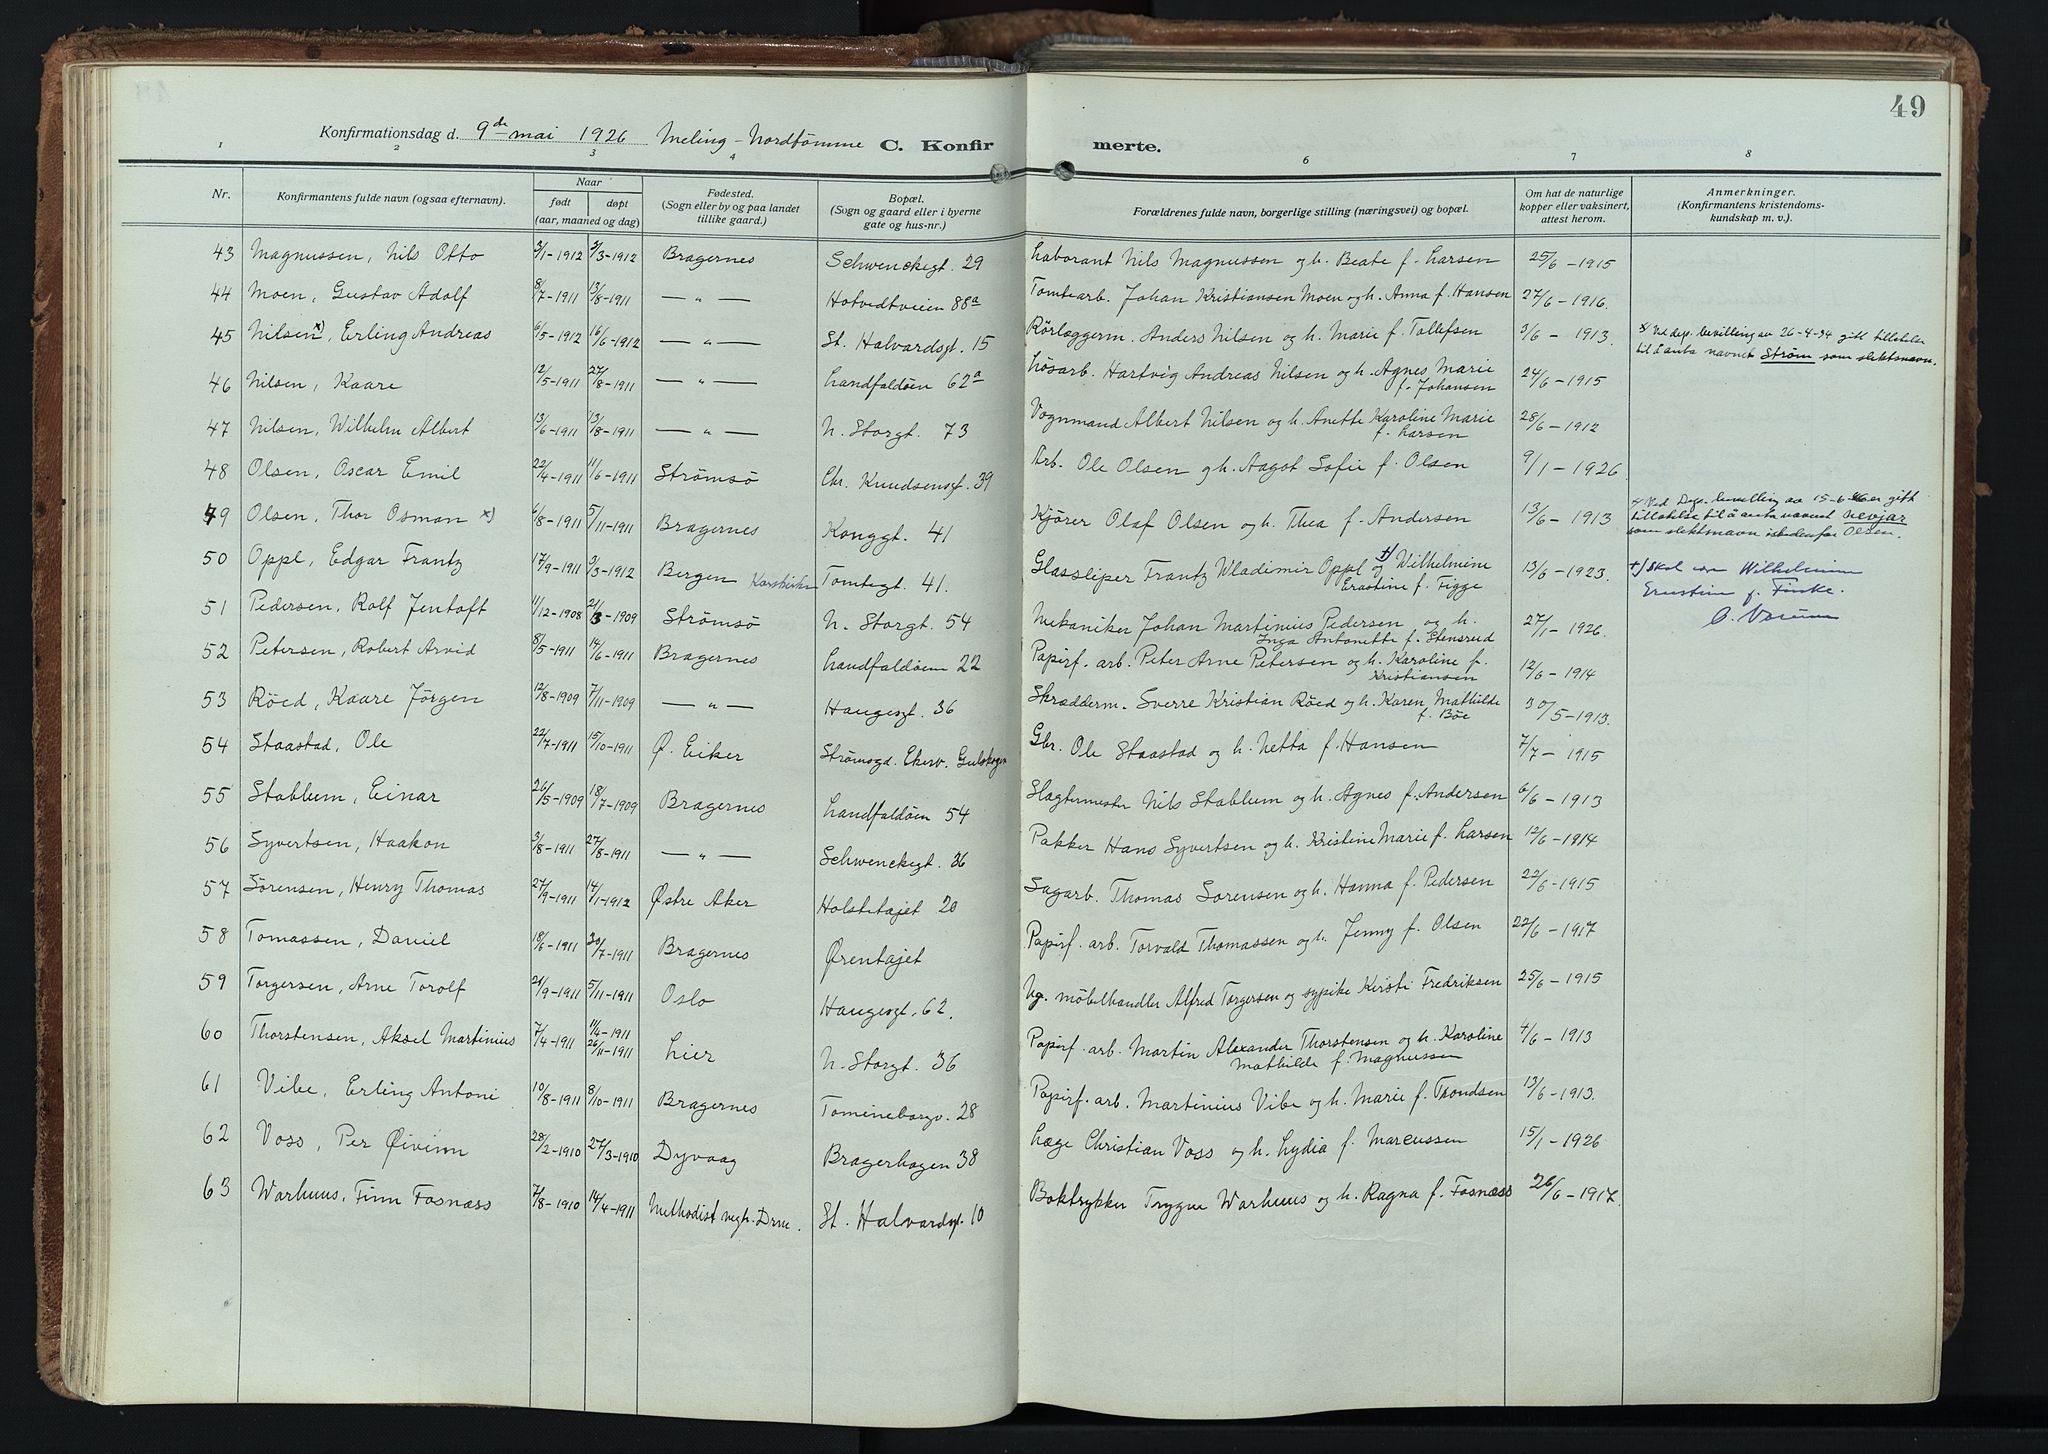 49
Konfirmationsdag d. 9de mai 1926 Meling - Nordtömme C. Konfirmerte.
1 2 3 4 6 7 8
Nr. Konfirmantens fulde navn (ogsaa efternavn). Naar født døpt (aar, maaned og dag) Fødested. (Sogn eller by og paa landet tillike gaard.) Bopæl. (Sogn og gaard eller i byerne gate og hus-nr.) Forældrenes fulde navn, borgerlige stilling (næringsvei) og bopæl. Om hat de naturlige kopper eller vaksinert, attest herom. Anmerkninger. (Konfirmantens kristendomskundskap m. v.).
43 Magnussen, Nils Otto 3/1-1912 3/3-1912 Bragernes Schwenckegt. 29 Laborant Nils Magnussen og h. Beate f. Larsen 25/6-1915
44 Moen, Gustav Adolf 8/7-1911 13/8-1911 — „ — Hotvedtveien 88a Tomtearb. Johan Kristiansen Moen og h. Anna f. Hansen 27/6-1916.
45 Nilsen x), Erling Andreas 6/5-1912 16/6-1912 — „ — St. Halvardsgt. 15 Rörlæggerm. Anders Nilsen og h. Marie f. Tollefsen 3/6-1913. x Ved dep. bevilling av 26-4-34 gitt tillatelse
til å anta navnet Strøm som slektsnavn.
46 Nilsen, Kaare 12/5-1911 27/8-1911 — „ — Landfaldöen 62a Lösarb. Hartvig Andreas Nilsen og h. Agnes Marie f. Johansen 24/6-1915
47 Nilsen, Wilhelm Albert 13/6-1911 13/8-1911 — „ — N. Storgt. 73 Vognmand Albert Nilsen og h. Anette Karoline Marie f. Larsen 28/6-1912
48 Olsen, Oscar Emil 22/4-1911 11/6-1911 Strömsö Chr. Knudsensgt. 39 Arb. Ole Olsen og h. Aagot Sofie f. Olsen 9/1-1926
49 Olsen, Thor Osman x) 6/8-1911 5/11-1911 Bragernes Konggt. 41 Kjörer Olaf Olsen og h. Thea f. Andersen 13/6-1913 x/ Ved Dep. bevilling av 15-6-46 er gitt
tillatelse til å anta navnet Nevjar
som slektsnavn istedenfor Olsen.
50 Oppl, Edgar Frantz 17/9-1911 3/3-1912 Bergen Korskirken Tomtegt. 41. Glassliper Frantz Wladimir Oppl og +) Wilhelmine Erastine f. Figge 13/6-1923. +) Skal være Wilhelmine
Ernstine f. Finke.
51 Pedersen, Rolf Jentoft 11/12-1908 21/3-1909 Strömsö N. Storgt. 54 Mekaniker Johan Martinius Pedersen og h. Inga Antonette f. Stensrud 27/1-1926.
52 Petersen, Robert Arvid 8/5-1911 14/6-1911 Bragernes Landfaldöen 22 Papirf. arb. Peter Arne Petersen og h. Karoline f. Kristiansen 12/6-1914
53 Röed, Kaare Jörgen 12/8-1909 7/11-1909 — „ — Haugesgt. 36 Skrædderm. Sverre Kristian Röed og h. Karen Mathilde f. Böe 30/5-1913.
54 Staastad, Ole 22/7-1911 15/10-1911 Ø. Eiker Strömsgd. Ekerv. Gulskogen Gbr. Ole Staastad og h. Netta f. Hansen 7/7-1915
55 Stablum, Einar 26/5-1909 18/7-1909 Bragernes Landfaldöen 54 Slagtermester Nils Stablum og h. Agnes f. Andersen 6/6-1913
56 Syvertsen, Haakon 3/8-1911 27/8-1911 — „ — Schwenckegt. 36 Pakker Hans Syvertsen og h. Kristine Marie f. Larsen 12/6-1914
57 Sörensen, Henry Thomas 27/9-1911 14/1-1912 Østre Aker Holstetajet 20 Sagarb. Thomas Sorensen og h. Hanna f. Pedersen 22/6-1915
58 Tomassen, Daniel 18/6-1911 30/7-1911 Bragernes Ørentajet Papirf. arb. Torvald Thomassen og h. Jenny f. Olsen 22/6-1917
59 Torgersen, Arne Torolf 21/9-1911 5/11-1911 Oslo Haugesgt. 62. Ug. möbelhandler Alfred Torgersen og sypike Kirsti Fredriksen 25/6-1915
60 Thorstensen, Aksel Martinius 7/4-1911 11/4-1911 26/11-1911 Lier N. Storgt. 36 Papirf. arb. Martin Alexander Thorstensen og h. Karoline Mathilde f. Magnussen 4/6-1913
61 Vibe, Erling Antoni 10/8-1911 8/10-1911 Bragernes Tomineborgv. 28 Papirf. arb. Martinius Vibe og h. Marie f. Trondsen 13/6-1913.
62 Voss, Per Øivinn 28/2-1910 27/3-1910 Dyvaag Bragerhagen 38 Læge Christian Voss og h. Lydia f. Marcussen 15/1-1926
63 Warhuus, Finn Fosnæss 7/8-1910 14/4-1911 Methodist megh. Drm. St. Halvardsgt. 10 Boktrykker Trygve Warhuus og h. Ragna f. Fosnæss 26/6-1917.